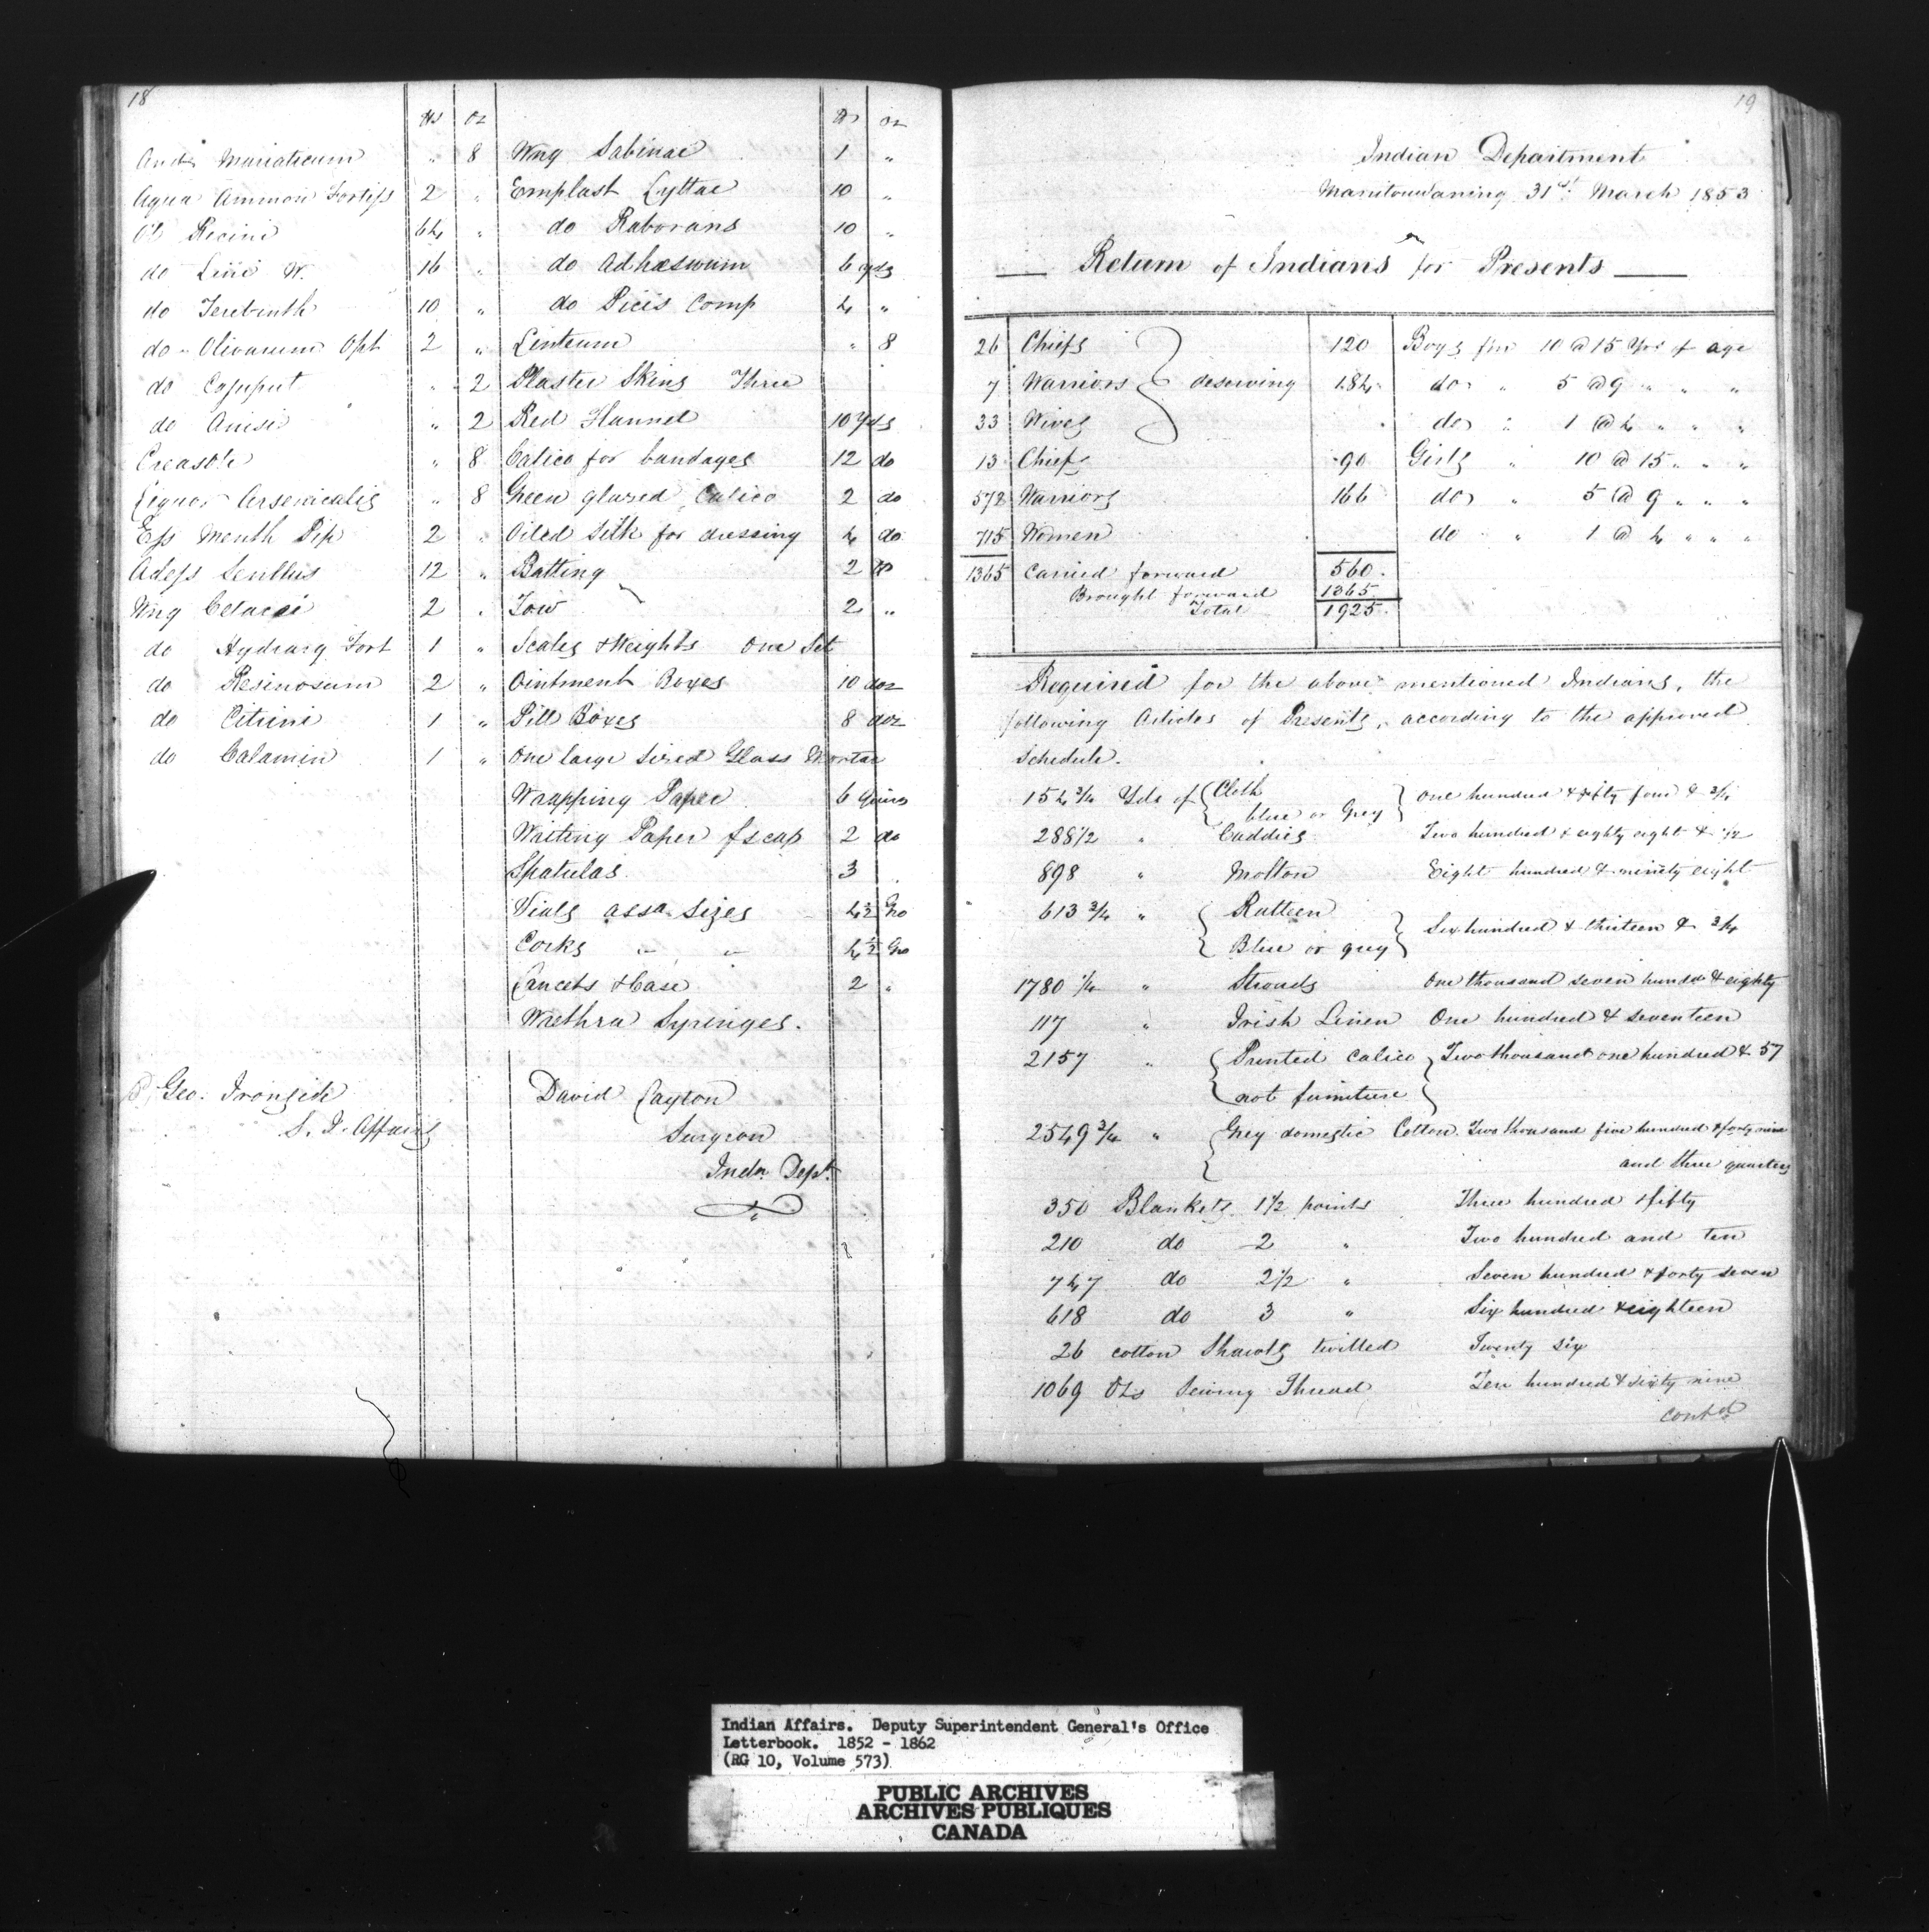 18
lbs oz
Acid Muriaticum " 8
Aqua Ammon Fortiss 2 "
Ol Ricini 64 "
do Lini W. 16 "
do Terebinth 10 "
do Olivarum Opt 2 "
do Cajuput " 2
do Anisi " 2
Creasote " 8
Liquor Arsenicalis " 8
Ess Menth Pip 2 "
Adeps 12 "
Ung Cetacei 2 "
do Hydrarg Fort 1 "
do Resinosum 2 "
do Citrini 1 "
do Calamin 1 "
P. Geo. Ironside
S. I. Affairs
lbs oz
Ung Sabinae 1 "
Emplast Lyttae 10 "
do Roborans 10 "
do Adhaesivum 6 yds
do Picis Comp 4 "
Linteum " 8
Plaster Skins Three
Red Flannel 10 Yds
Calico for bandages 12 do
Green glazed Calico 2 do
Oiled Silk for dressing 4 do
Batting 2 lb
Tow 2 "
Scales & Weights One Set
Ointment Boxes 10 doz
Pill Boxes 8 doz
One large sized Glass Mortar
Wrapping Paper 6 Quires
Writing Paper fscap 2 do
Spatulas 3
Vials assd sizes 4½ Gro
Corks " " 4½ Gro
Lancets & Case 2 "
Urethra Syringes.
David Layton
Surgeon
Indn Dept.
19
Indian Department
Manitouwaning 31st March 1853
Return of Indians for Presents
26 Chiefs } deserving 120 Boys fm 10 @ 15 Yrs of age
7 Warriors 184 do " 5 @ 9 " " "
33 Wives do " 1 @ 4 " " "
13 Chiefs 90 Girls " 10 @ 15 " " "
572 Warriors 166 do " 5 @ 9 " " "
715 Women do " 1 @ 4 " " "
1365 Carried forward 560.
Brought forward 1365.
Total 1925.
Required for the above mentioned Indians, the
following Articles of Presents, according to the approved
Schedule.
154 3/4 Yds of { Cloth blue or Grey } One hundred & fifty four & 3/4
288 1/2 " Caddies Two hundred & eighty eight & 1/2
898 " Molton Eight hundred & ninety eight
613 3/4 " { Ratteen
Blue or grey } Six hundred & thirteen & 3/4
1780 1/4 " Strouds One thousand seven hundd & eighty
117 " Irish Linen One hundred & seventeen
2157 " { Printed Calico } Two thousand one hundred & 57
not furniture
2549 3/4 " { Grey domestic Cotton Two thousand five hundred & forty nine
and three quarters
350 Blankets 1 1/2 points Three hundred & fifty
210 do 2 " Two hundred and ten
747 do 2 1/2 " Seven hundred & forty seven
618 do 3 " Six hundred & eighteen
26 cotton Shawls twilled Twenty six
1069 Ozs Sewing Thread Ten hundred & sixty nine
contd
Indian Affairs. Deputy Superintendent General's Office
Letterbook. 1852 - 1862
(RG 10, Volume 573)
PUBLIC ARCHIVES
ARCHIVES PUBLIQUES
CANADA